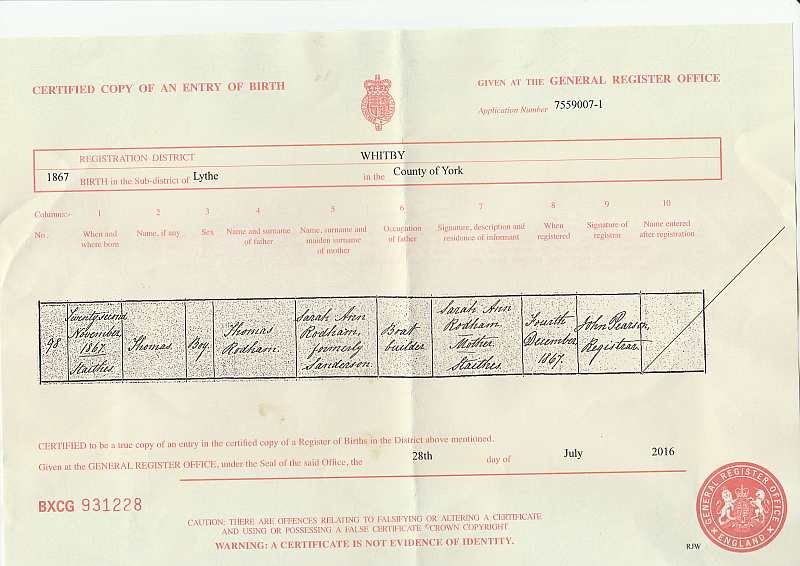 CERTIFIED COPY OF AN ENTRY OF BIRTH
GIVEN AT THE GENERAL REGISTER OFFICE
Application Number 7559007-1
REGISTRATION DISTRICT WHITBY
1867 BIRTH in the Sub-district of Lythe in the County of York
Columns:- 1 2 3 4 5 6 7 8 9 10
No. When and where born Name, if any Sex Name and surname of father Name, surname and maiden surname of mother Occupation of father Signature, description and residence of informant When registered Signature of registrar Name entered after registration
98 Twenty second November 1867 Staithes Thomas Boy Thomas Rodham. Sarah Ann Rodham, formerly Sanderson. Boat builder Sarah Ann Rodham Mother Staithes Fourth December 1867. John Pearson, Registrar.
CERTIFIED to be a true copy of an entry in the certified copy of a Register of Births in the District above mentioned.
Given at the GENERAL REGISTER OFFICE, under the Seal of the said Office, the 28th day of July 2016
BXCG 931228
CAUTION: THERE ARE OFFENCES RELATING TO FALSIFYING OR ALTERING A CERTIFICATE
AND USING OR POSSESSING A FALSE CERTIFICATE ©CROWN COPYRIGHT
WARNING: A CERTIFICATE IS NOT EVIDENCE OF IDENTITY.
GENERAL REGISTER OFFICE
ENGLAND
RJW